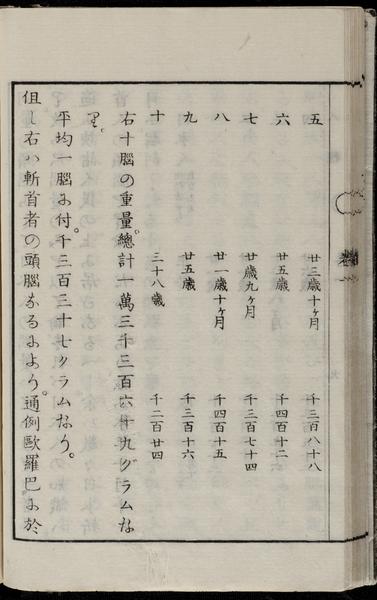 五 廿三歳十ヶ月 千三百八十八
六 廿五歳 千四百十二
七 廿歳九ヶ月 千三百七十四
八 廿一歳十ヶ月 千四百十五
九 廿五歳 千三百十六
十 三十八歳 千二百廿四
右十腦の重量。總計一萬三千三百六十九グラムな
り。
平均一腦に付。千三百三十七グラムなり。
但し右ハ斬首者の頭腦なるによりう。通例歐羅巴に於